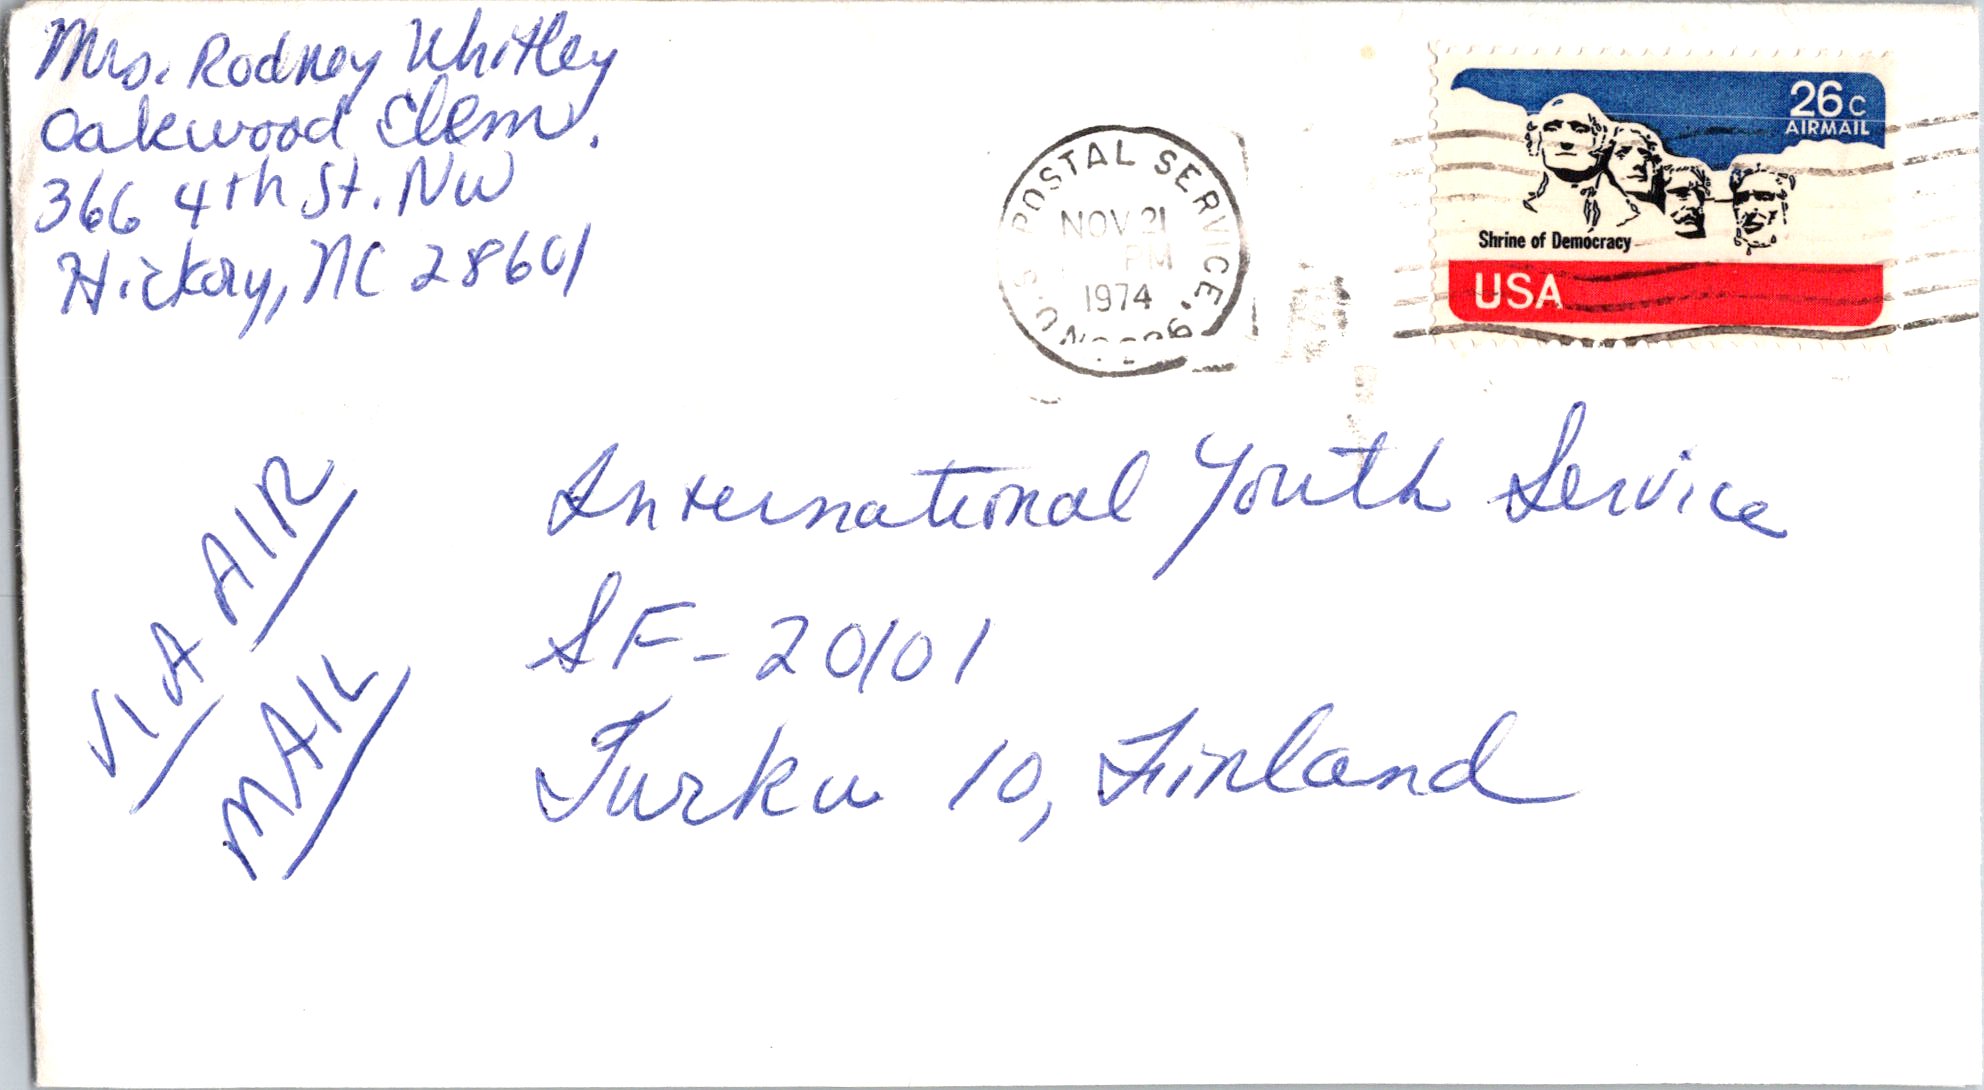 Mrs. Rodney Whitley
Oakwood Elem.
366 4th St. NW
Hickory, NC 28601
U.S. POSTAL SERVICE
NOV 21
PM
1974
26c
AIRMAIL
Shrine of Democracy
USA
VIA AIR
MAIL
International Youth Service
SF-20101
Turku 10, Finland